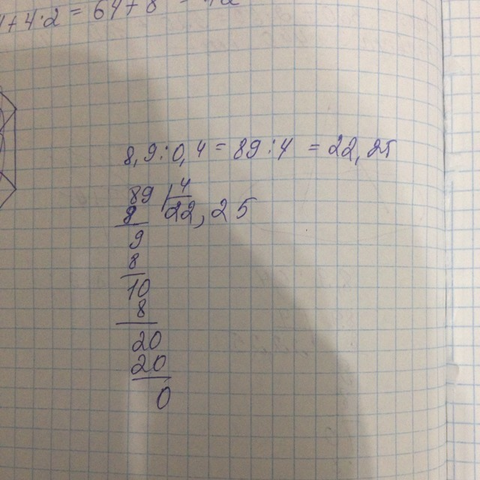 4·2 = 64+8 =
8,9:0,4 = 89:4 = 22,25
89 | 4
8 22,25
9
8
10
8
20
20
0